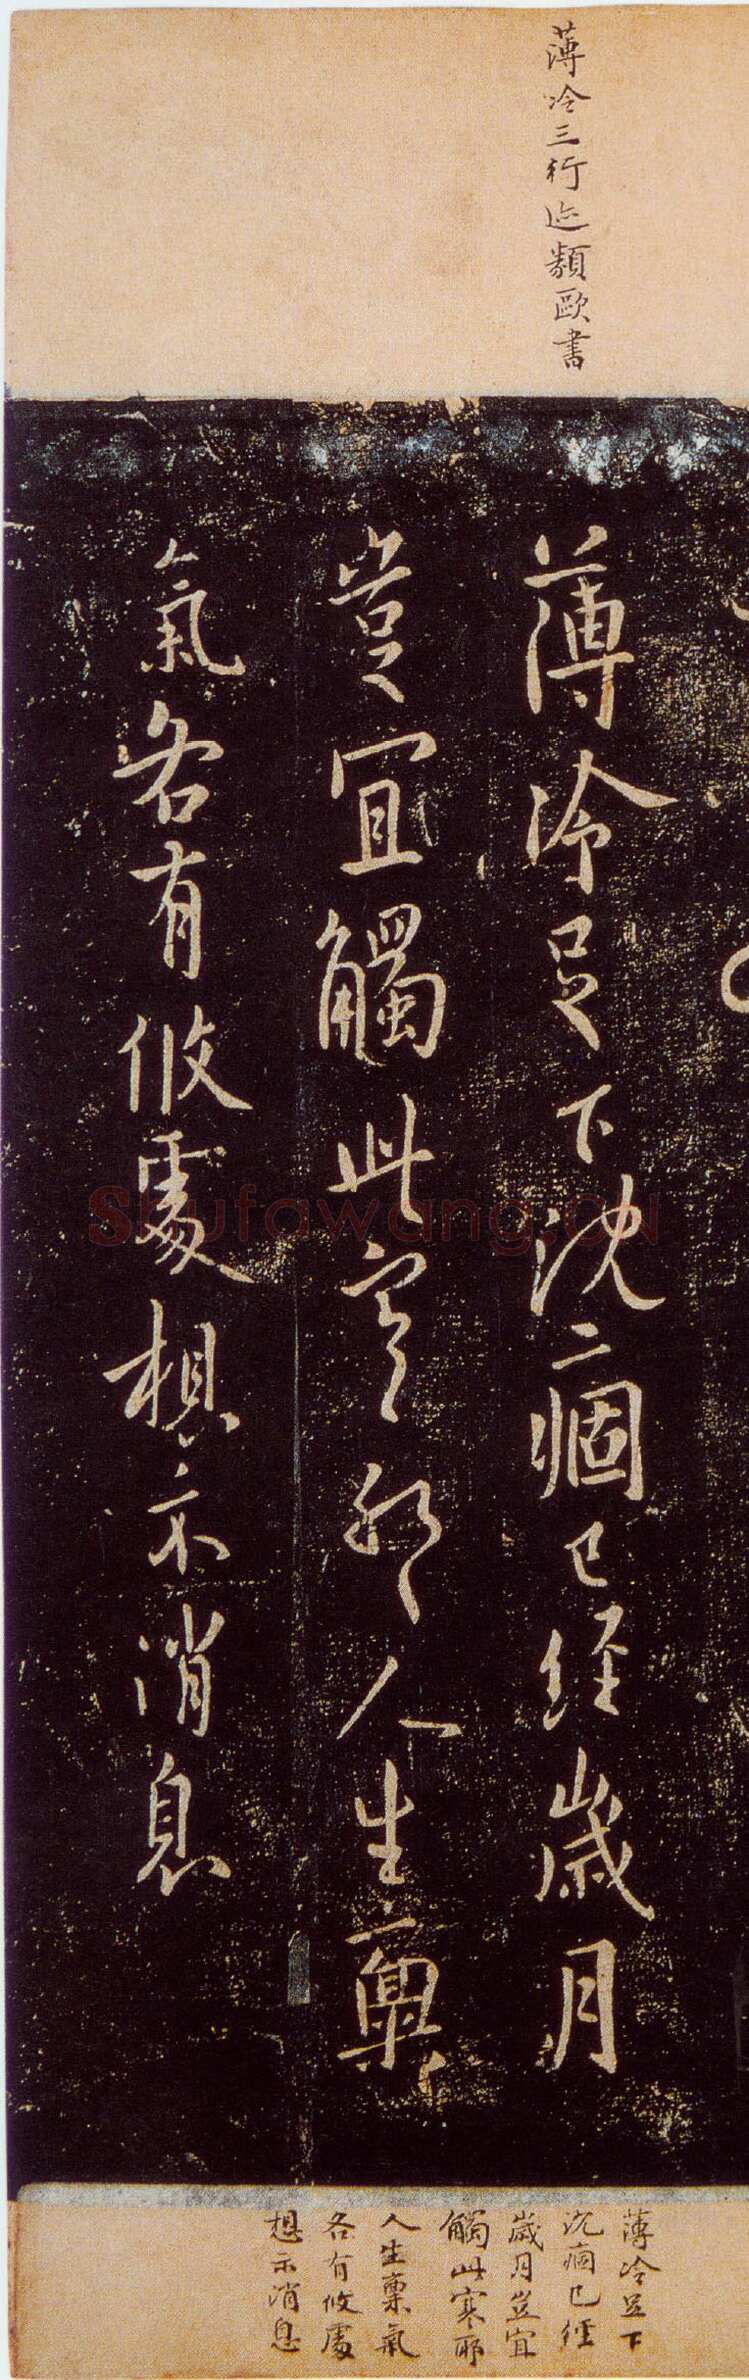 薄冷三行迹類歐書
薄冷足下沈痼已經歲月
豈宜觸此寒耶人生稟
氣各有攸處想示消息
薄冷足下
沉痼已經
歲月豈宜
觸此寒耶
人生稟氣
各有攸處
想示消息
Shufawang.CN